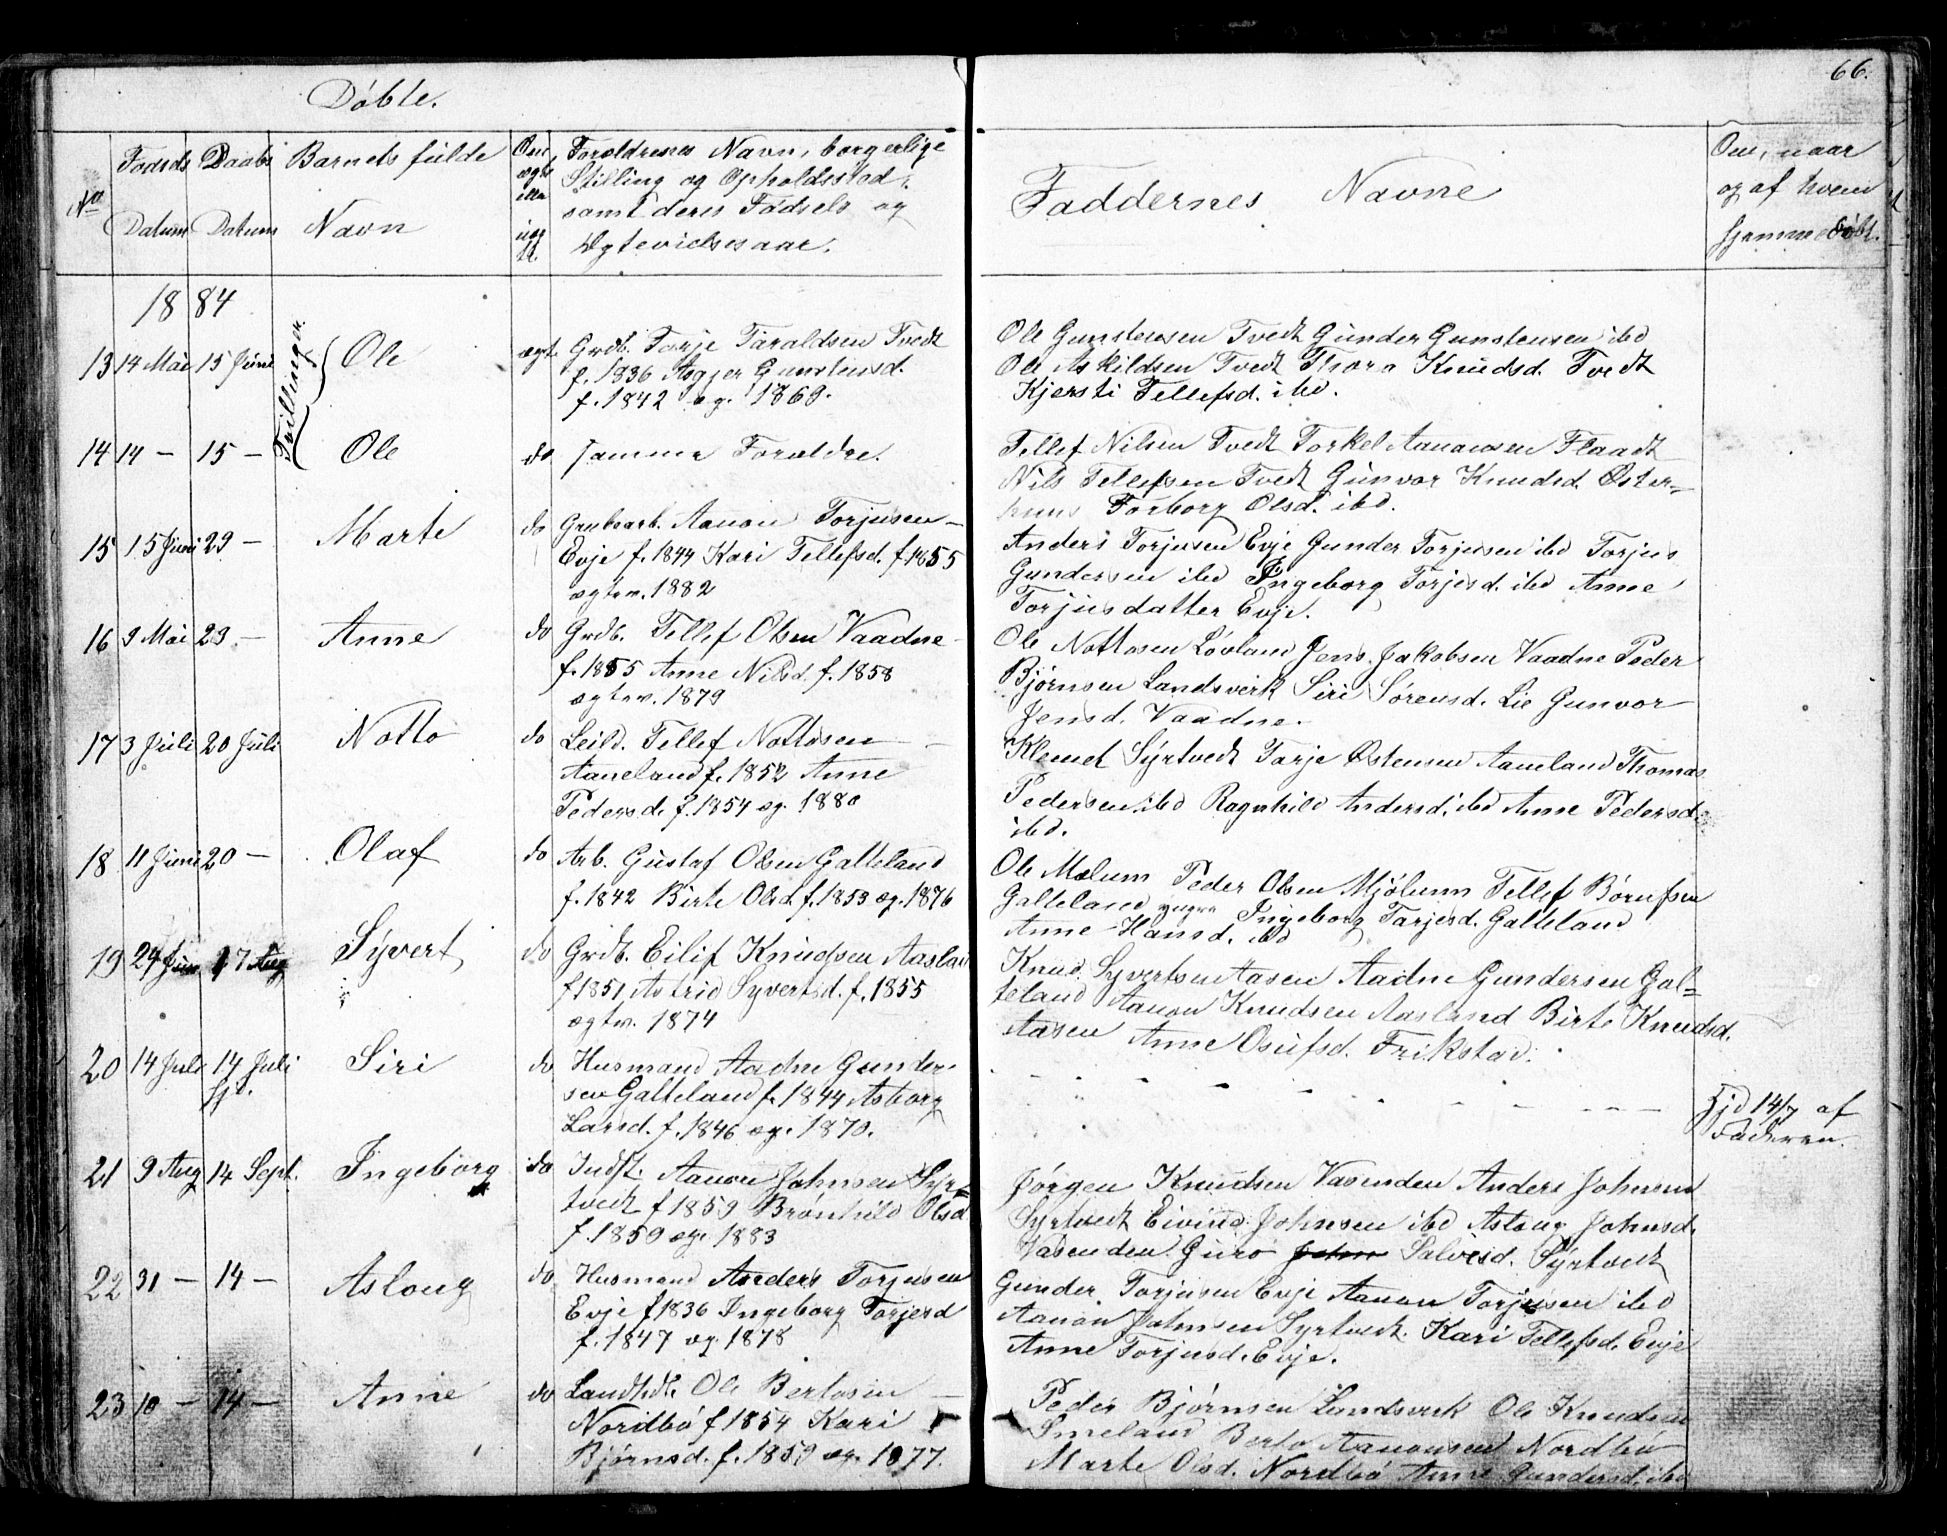 66.
Døbte.
No
Fødsels Datum
Daabs Datum
Barnets fulde Navn
Om ægte eller uægte.
Forældrenes Navn, borgerlige
Stilling og Opholdssted,
samt deres Fødsels og
Ægtevielsesaar.
Faddernes Navne
Om, naar
og af hvem
hjemmedøbt.
1884
Tvillinger.
13 14 Mai 15 Juni Ole ægte Grdb. Tarje Taraldsen Tvedt
f. 1836 Asgjer Gunstensd.
f. 1842 æg. 1869.
Ole Gunstensen Tvedt Gunder Gunstensen ibd
Ole Askildsen Tvedt Thora Knudsd. Tvedt
Kjersti Tellefsd. ibd.
14 14 — 15 — Ole do samme Forældre.
Tellef Nilsen Tvedt Torkel Aanonsen Flaadt
Nils Tellefsen Tvedt Gunvor Knudsd. Øster=
huus Torborg Olsd. ibd.
15 15 Juni 29 — Marte do Grubearb. Aanon Torjusen —
Evje f. 1844 Kari Tellefsd. f. 1855
ægtev. 1882
Anders Torjusen Evje Gunder Torjusen ibd Torjus
Gundersen ibd Ingeborg Torjesd. ibd Anne
Torjusdatter Evje.
16 9 Mai 29 — Anne do Grdb. Tellef Olsen Vaadne —
f. 1855 Anne Nilsd. f. 1858
ægtev. 1879
Ole Nottosen Løvland Jens Jakobsen Vaadne Peder
Bjørnsen Landsverk Siri Sørensd. Lie Gunvor
Jensd. Vaadne.
17 3 Juli 20 Juli Notto do Leild. Tellef Nottosen
Aaneland f. 1852 Anne
Pedersd. f. 1854 æg. 1880
Klemet Syrtvedt Tarje Østensen Aaneland Thomas
Pedersen ibd Ragnhild Andersd. ibd Anne Pedersd.
ibd.
18 11 Juni 20 — Olaf do Arb. Gustaf Olsen Galteland
f. 1842 Birte Olsd. f. 1853 æg. 1876
Ole Mølum Peder Olsen Mjølum Tellef Børufsen
Galteland yngre Ingeborg Tarjesd. Galteland
Anne Hansd. ibd
19 24 Juni 17 Aug Syvert do Grdb. Eilif Knudsen Aasland
f 1851 Astrid Syvertsd. f. 1855
ægtev. 1874
Knud Syvertsen Aasen Aadne Gundersen Gal=
teland Aanon Knudsen Aasland Birte Knudsd.
Aasen Anne Osufsd. Frikstad.
20 14 Juli 14 Juli Siri do Husmand Aadne Gunder-
hjd.
sen Galteland f. 1844 Asborg
Larsd. f. 1846 æg. 1870.
Hjd 14/7 af
Faderen.
21 9 Aug 14 Sept. Ingeborg do Indst. Aanon Johnsen Syr=
tvedt f 1859 Brønhild Olsd
f. 1859 æg. 1883
Jørgen Knudsen Vasenden Anders Johnsen
Syrtvedt Eivind Johnsen ibd Aslaug Johnsd.
Vasenden Guro John Salvesd. Syrtvedt
22 31 — 14 — Aslaug do Husmand Anders Torjusen
Evje f 1836 Ingeborg Torjesd
f. 1847 æg. 1878
Gunder Torjusen Evje Aanon Torjusen ibd
Aanon Johnsen Syrtvedt. Kari Tellefsd. Evje
Anne Torjusd. Evje.
23 10 — 14 — Anne do Landhdl. Ole Bertosen —
Nordbø f 1854 Kari
Bjørnsd. f. 1859 æg. 1877.
Peder Bjørnsen Landsverk Ole Knudsen
Smeland Berto Aanonsen Nordbø
Marte Olsd. Nordbø Anne Gundersd. ibd